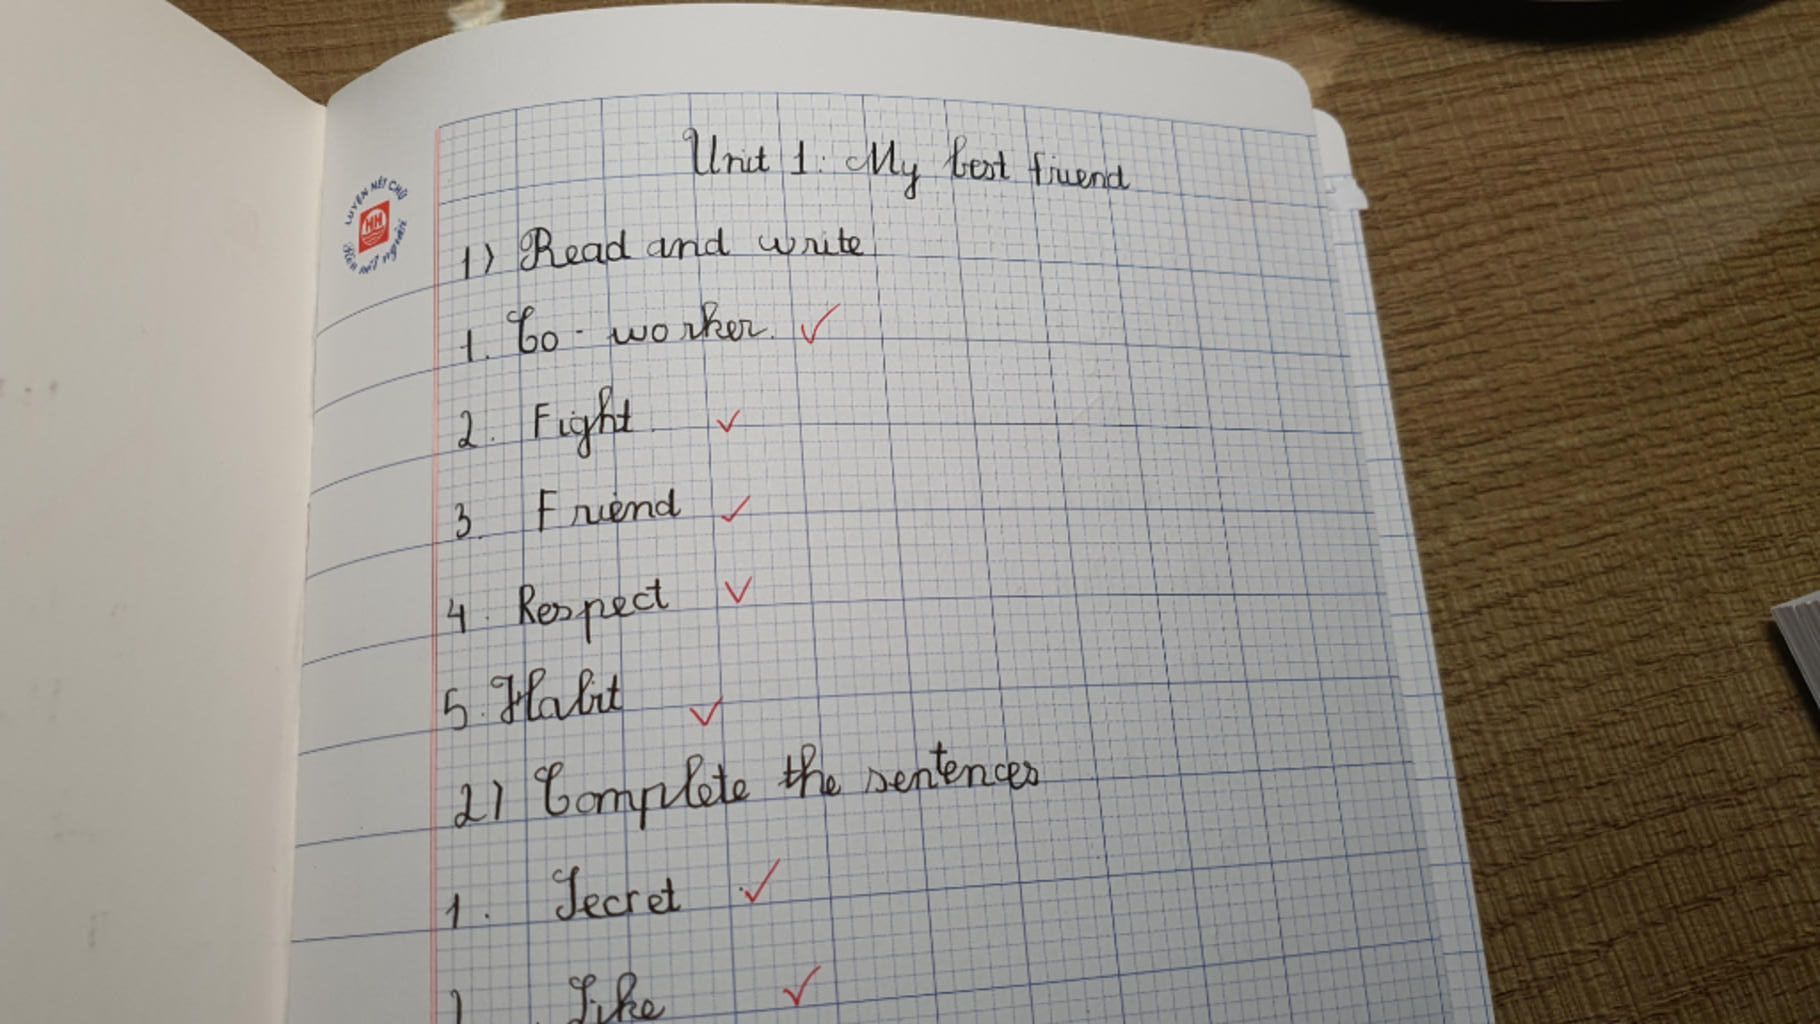 Unit 1: My best friend
LUYỆN NÉT CHỮ
Rèn nết người
HH
1) Read and write
1. Co - worker. ✓
2. Fight ✓
3. Friend ✓
4. Respect ✓
5. Habit ✓
2) Complete the sentences
1. Secret ✓
Like ✓